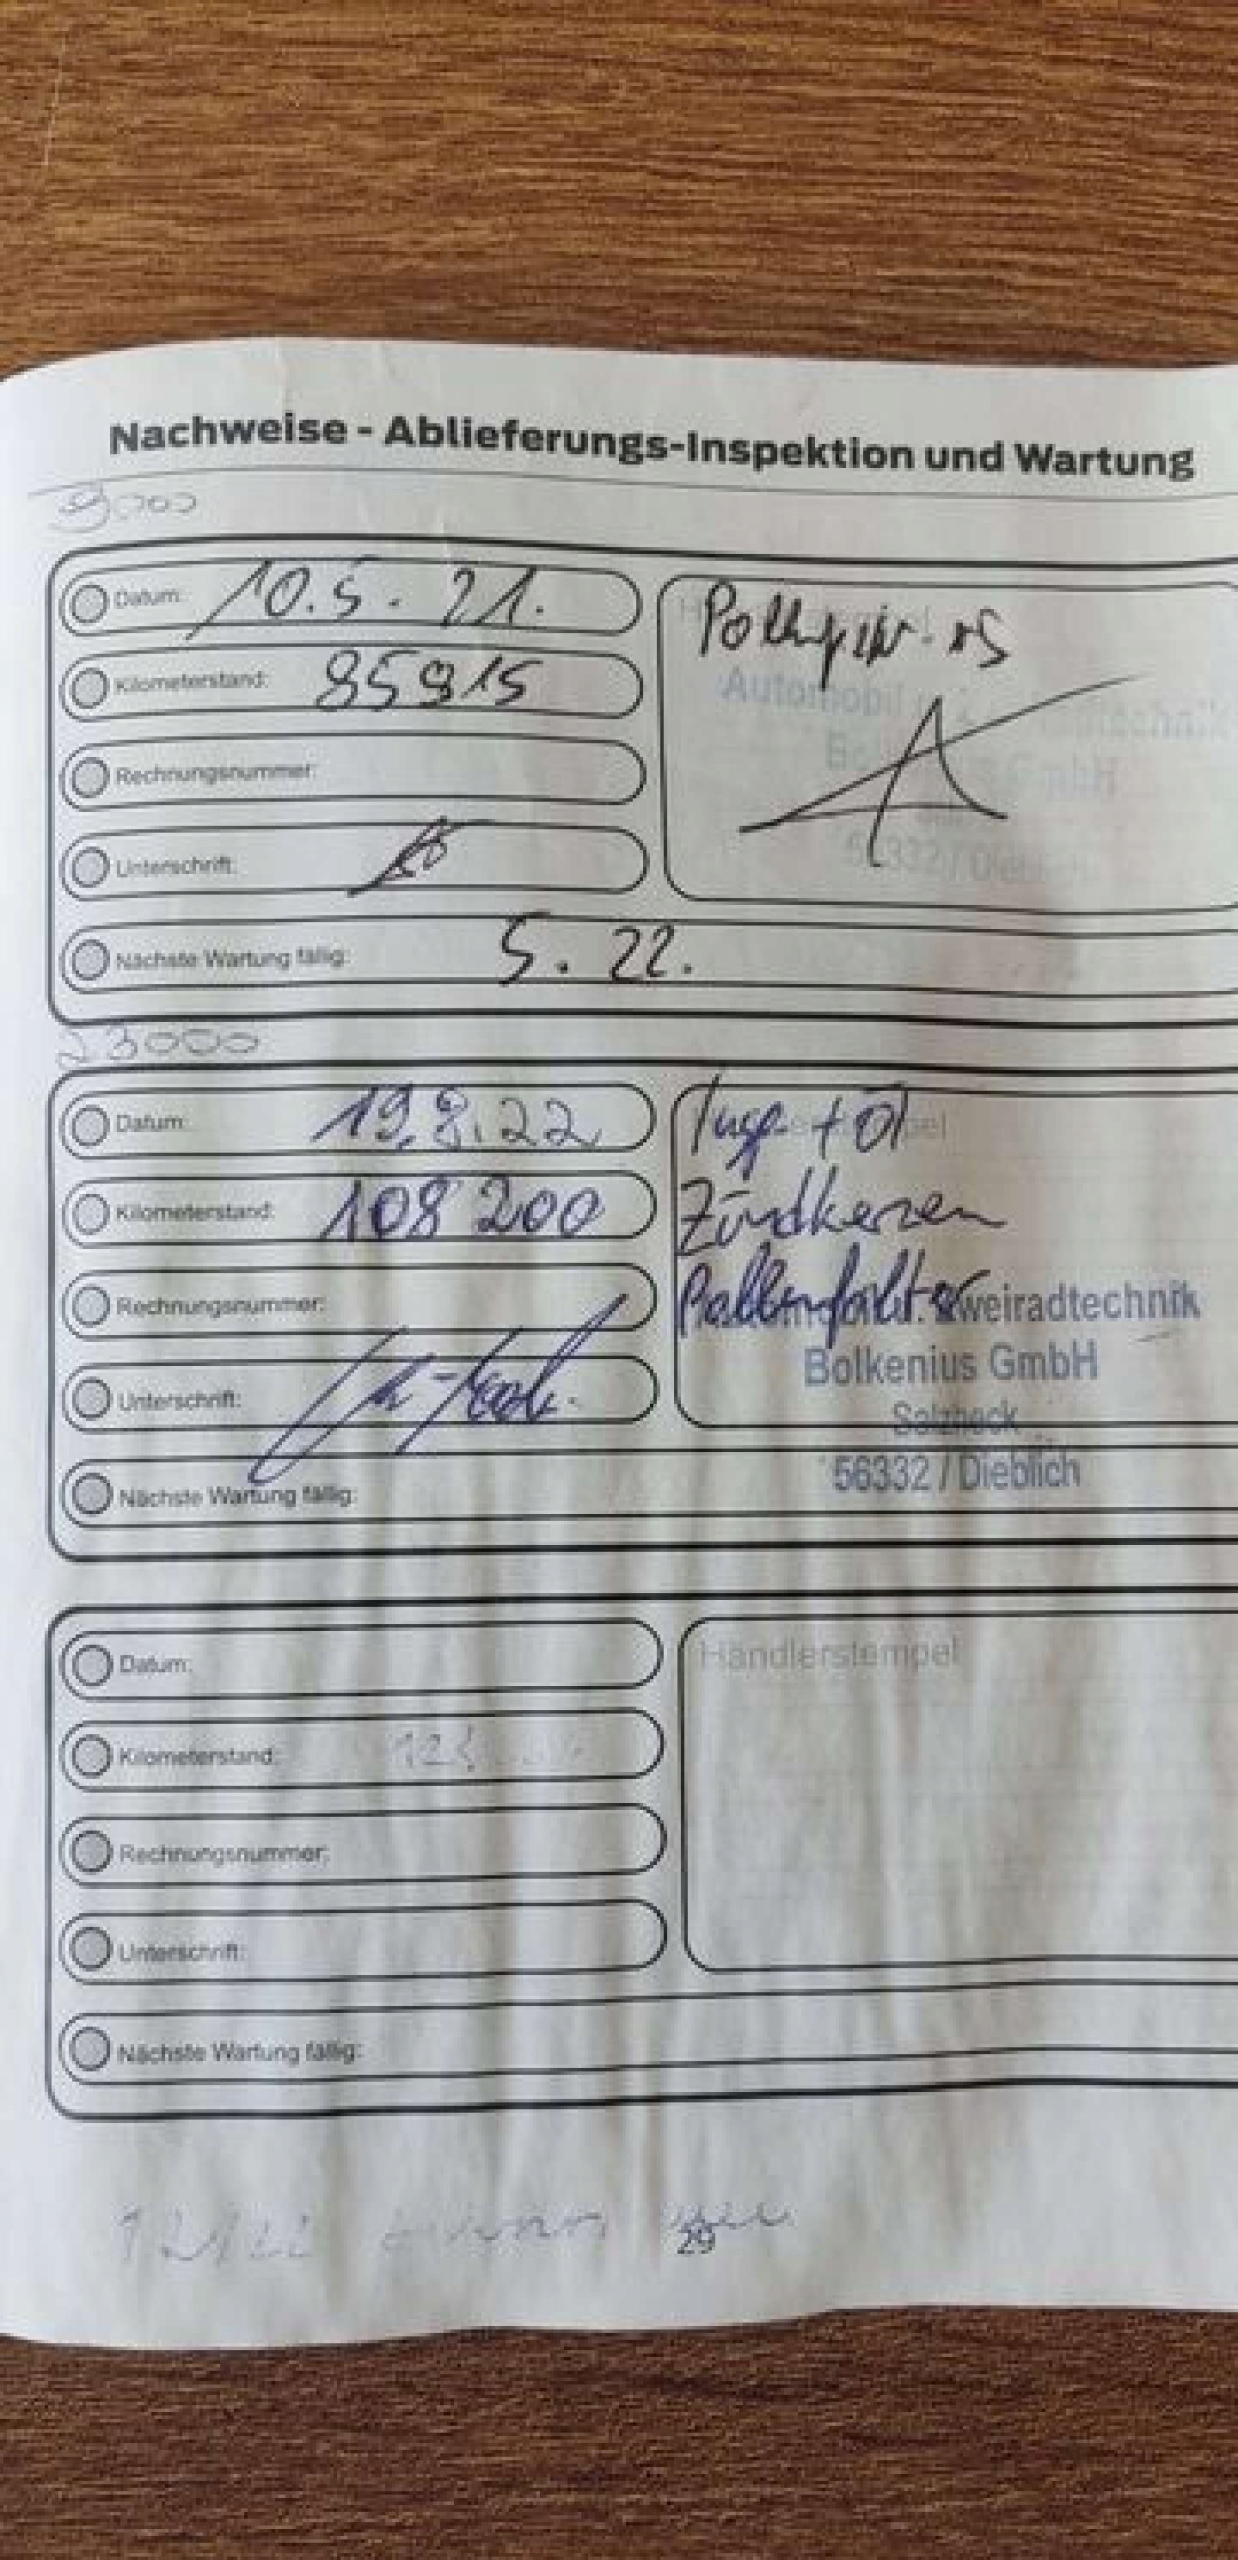 Nachweise - Ablieferungs-Inspektion und Wartung
9000
Datum: 10.5.21.
Kilometerstand: 85915
Rechnungsnummer:
Unterschrift:
Nächste Wartung fällig: 5.22.
Automobil
GmbH
56332 / Dieblich
23000
Datum: 19.8.22
Kilometerstand: 108200
Rechnungsnummer:
Unterschrift:
Nächste Wartung fällig:
Insp + Öl
Zündkerzen
Pollenfilter
Zweiradtechnik
Bolkenius GmbH
Salzheck
56332 / Dieblich
Datum:
Kilometerstand:
Rechnungsnummer:
Unterschrift:
Nächste Wartung fällig:
Händlerstempel
12/22
29